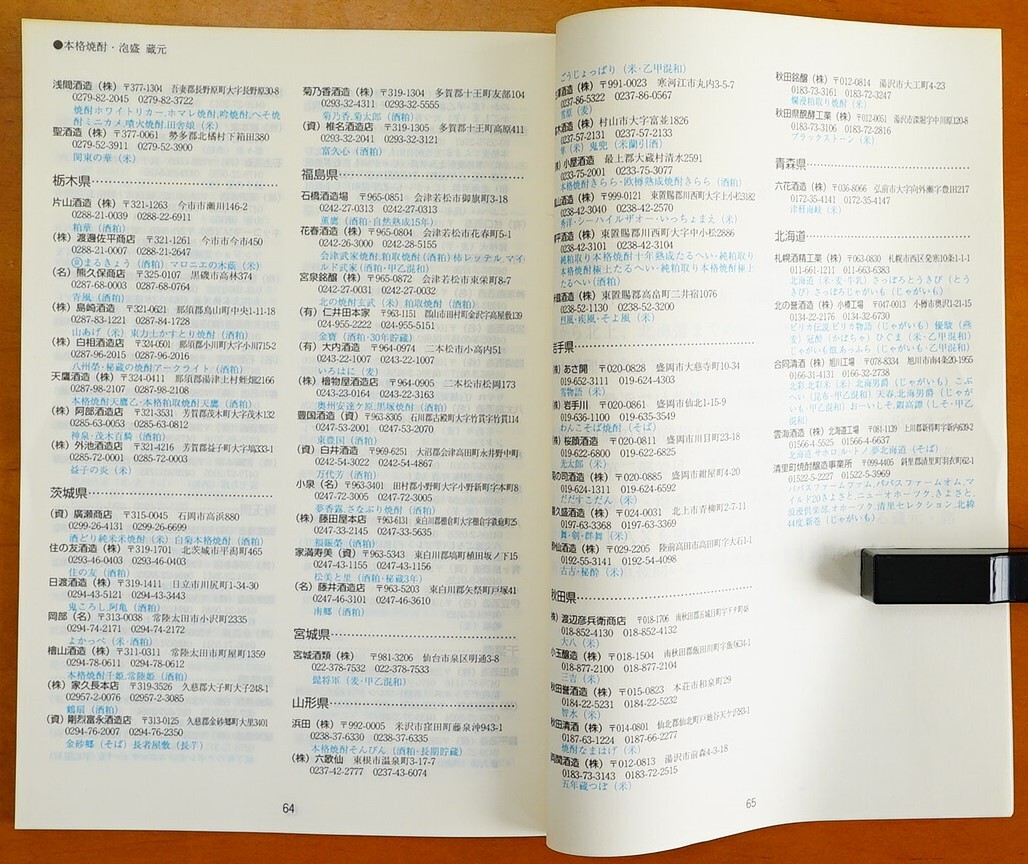 ●本格焼酎・泡盛 蔵元
浅間酒造（株） 〒377-1304 吾妻郡長野原町大字長野原30-8
0279-82-2045 0279-82-3722
焼酎ホワイトリカー,ホマレ焼酎,吟焼酎,ヘそ焼
酎ミニカメ,噴火焼酎,田舎娘（米）
聖酒造（株） 〒377-0061 勢多郡北橘村下箱田380
0279-52-3911 0279-52-3900
関東の華（米）
栃木県
片山酒造（株） 〒321-1263 今市市瀬川146-2
0288-21-0039 0288-22-6911
粕華（酒粕）
（株）渡邊佐平商店 〒321-1261 今市市今市450
0288-21-0007 0288-21-2647
まるきょう（酒粕） マロニエの木蔭（米）
（名）熊久保商店 〒325-0107 黒磯市高林374
0287-68-0003 0287-68-0764
青風（酒粕）
（株）島崎酒造 〒321-0621 那須郡烏山町中央1-11-18
0287-83-1221 0287-84-1728
山あげ（米）東力士かすとり焼酎（酒粕）
（株）白相酒造 〒324-0501 那須郡小川町大字小川715-2
0287-96-2015 0287-96-2016
八州榮・秘蔵の焼酎アークライト（酒粕）
天鷹酒造（株） 〒324-0411 那須郡湯津上村蛭畑2166
0287-98-2107 0287-98-2108
本格焼酎天鷹乙・本格粕取焼酎天鷹（酒粕）
（株）阿部酒造 〒321-3531 芳賀郡茂木町大字茂木132
0285-63-0053 0285-63-0812
神泉・茂木百騎（酒粕）
（株）外池酒造店 〒321-4216 芳賀郡益子町大字塙333-1
0285-72-0001 0285-72-0003
益子の炎（米）
茨城県
（資）廣瀬商店 〒315-0045 石岡市高浜880
0299-26-4131 0299-26-6699
酒どり純米米焼酎（米）白菊本格焼酎（酒粕）
住の友酒造（株） 〒319-1701 北茨城市平潟町465
0293-46-0403 0293-46-0403
住の友（酒粕）
日渡酒造（株） 〒319-1411 日立市川尻町1-34-30
0294-43-5121 0294-43-3443
鬼ころし,阿亀（酒粕）
岡部（名） 〒313-0038 常陸太田市小沢町2335
0294-74-2171 0294-74-2172
よかっぺ（米・酒粕）
檜山酒造（株） 〒311-0311 常陸太田市町屋町1359
0294-78-0611 0294-78-0612
本格焼酎千姫,常陸姫（酒粕）
（株）家久長本店 〒319-3526 久慈郡大子町大子248-1
02957-2-0076 02957-2-3085
鶴扇（酒粕）
（資）剛烈富永酒造店 〒313-0125 久慈郡金砂郷町大里3401
0294-76-2007 0294-76-2350
金砂郷（そば）長者屋敷（長芋）
菊乃香酒造（株） 〒319-1304 多賀郡十王町友部104
0293-32-4311 0293-32-5555
菊乃香,菊太郎（酒粕）
（資）椎名酒造店 〒319-1305 多賀郡十王町高原411
0293-32-2041 0293-32-3121
富久心（酒粕）
福島県
石橋酒造場 〒965-0851 会津若松市御旗町3-18
0242-27-0313 0242-27-0313
薫鷹（酒粕・自然熟成15年）
花春酒造（株） 〒965-0804 会津若松市花春町5-1
0242-26-3000 0242-28-5155
会津武家焼酎,粕取焼酎（酒粕）柿レッテル,マイ
ルド武家（酒粕・甲乙混和）
宮泉銘醸（株） 〒965-0872 会津若松市東栄町8-7
0242-27-0031 0242-27-0032
北の焼酎玄武（米）粕取焼酎（酒粕）
（有）仁井田本家 〒963-1151 郡山市田村町金沢字高屋敷139
024-955-2222 024-955-5151
金寶（酒粕・30年貯蔵）
（有）大内酒造 〒964-0974 二本松市小高内51
0243-22-1007 0243-22-1007
いろはに（麦）
（株）檜物屋酒造店 〒964-0905 二本松市松岡173
0243-23-0164 0243-22-3163
奥州安達ケ原,黒塚焼酎（酒粕）
豊国酒造（資） 〒963-8305 石川郡古殿町大字竹貫字竹貫114
0247-53-2001 0247-53-2070
東豊国（酒粕）
（資）白井酒造 〒969-6251 大沼郡会津高田町永井野中町
0242-54-3022 0242-54-4867
万代芳（酒粕）
小泉（名） 〒963-3401 田村郡小野町大字小野新町字本町8
0247-72-3005 0247-72-3005
夢香露,さなぶり焼酎（酒粕）
（株）藤田屋本店 〒963-6131 東白川郡棚倉町大字棚倉字鉄砲町25
0247-33-2145 0247-33-5635
福賑榮（酒粕）
家満寿美（資） 〒963-5343 東白川郡塙町植田坂ノ下15
0247-43-1155 0247-43-1156
松美と里（酒粕・秘蔵3年）
（名）藤井酒造店 〒963-5203 東白川郡矢祭町戸塚41
0247-46-3101 0247-46-3610
南郷（酒粕）
宮城県
宮城酒類（株） 〒981-3206 仙台市泉区明通3-8
022-378-7532 022-378-7533
髭将軍（麦・甲乙混和）
山形県
浜田（株） 〒992-0005 米沢市窪田町藤泉沖943-1
0238-37-6330 0238-37-6335
本格焼酎そんぴん（酒粕・長期貯蔵）
（株）六歌仙 東根市温泉町3-17-7
0237-42-2777 0237-43-6074
64
ごうじょっぱり（米・乙甲混和）
酒造（株） 〒991-0023 寒河江市丸内3-5-7
0237-86-5322 0237-86-0567
雪原（麦）
木酒造（株） 村山市大字富並1826
0237-57-2131 0237-57-2133
隼（米）鬼兜（米蘭引酒）
）小屋酒造 最上郡大蔵村清水2591
0233-75-2001 0233-75-3077
本格焼酎きらら・欧樽熟成焼酎きらら（酒粕）
山酒造（株） 〒999-0121 東置賜郡川西町大字上小松3382
0238-42-3040 0238-42-2570
秀洋・シーハイルザオー・いっちょまえ（米）
平酒造（株） 東置賜郡川西町大字中小松2886
0238-42-3101 0238-42-3104
純粕取り本格焼酎十年熟成たるへい・純粕取り
本格焼酎極上たるへい・純粕取り本格焼酎極上
たるへい（酒粕）
酒造（株） 東置賜郡高畠町二井宿1076
0238-52-1130 0238-52-3200
烈風・疾風・そよ風（米）
岩手県
（株）あさ開 〒020-0828 盛岡市大慈寺町10-34
019-652-3111 019-624-4303
雪物語（米）
（株）岩手川 〒020-0861 盛岡市仙北1-15-9
019-636-1100 019-635-3549
わんこそば焼酎（そば）
（株）桜顔酒造 〒020-0811 盛岡市川目町23-18
019-622-6800 019-622-6825
光太郎（米）
の司酒造（株） 〒020-0885 盛岡市紺屋町4-20
019-624-1311 019-624-6592
だだすこだん（米）
久盛酒造（株） 〒024-0031 北上市青柳町2-7-11
0197-63-3368 0197-63-3369
舞・剣・群舞（米）
仙酒造（株） 〒029-2205 陸前高田市高田町字大石1-1
0192-55-3141 0192-54-4098
古古・秘酔（米）
秋田県
（株）渡辺彦兵衛商店 〒018-1706 南秋田郡五城目町字下タ町48
018-852-4130 018-852-4132
大八（米）
小玉醸造（株） 〒018-1504 南秋田郡飯田川町字飯塚34-1
018-877-2100 018-877-2104
三吉（米）
秋田誉酒造（株） 〒015-0823 本荘市和泉町29
0184-22-5231 0184-22-5232
智水（米）
秋田清酒（株） 〒014-0801 仙北郡仙北町戸地谷天ケ沢83-1
0187-63-1224 0187-66-2277
焼酎なまはげ（米）
両関酒造（株） 〒012-0813 湯沢市前森4-3-18
0183-73-3143 0183-72-2515
五年蔵つぼ（米）
秋田銘醸（株） 〒012-0814 湯沢市大工町4-23
0183-73-3161 0183-72-3247
爛漫粕取り焼酎（米）
秋田県醗酵工業（株） 〒012-0051 湯沢市深堀字中川原120-8
0183-73-3106 0183-72-2816
ブラックストーン（米）
青森県
六花酒造（株） 〒036-8066 弘前市大字向外瀬字豊田217
0172-35-4141 0172-35-4147
津軽海峡（米）
北海道
札幌酒精工業（株） 〒063-0830 札幌市西区発寒10条1-1-1
011-661-1211 011-663-6383
北海道（米・麦・牛乳）さっぽろとうきび（とう
きび）さっぽろじゃがいも（じゃがいも）
北の誉酒造（株）小樽工場 〒047-0013 小樽市奥沢1-21-15
0134-22-2176 0134-32-6730
ピリカ伝説,ピリカ物語（じゃがいも）優駿（燕
麦）冠酔（かぼちゃ）ひぐま（米・乙甲混和）
じゃがいも焼あっふら（じゃがいも・乙甲混和）
合同酒清（株）旭川工場 〒078-8334 旭川市南4条20-1955
0166-31-4131 0166-32-2738
北彩,北彩米（米）北海男爵（じゃがいも）こぶ
へい（昆布・甲乙混和）天春,北海男爵（じゃが
いも・甲乙混和）おーいしそ,鍛高譚（しそ・甲乙
混和）
雲海酒造（株）北海道工場 〒081-1139 上川郡新得町字新内639-2
01566-4-5525 01566-4-6637
北海道サホロ,ルートノ夢北海道（そば）
清里町焼酎醸造事業所 〒099-4405 斜里郡清里町羽衣町62-1
01522-5-2227 01522-5-3969
パパスファームファム,パパスファームオム,マ
イルド20きよさと,ニューオホーツク,きよさと,
浪漫倶楽部,オホーツク,清里セレクション,北緯
44度,新巻（じゃがいも）
65